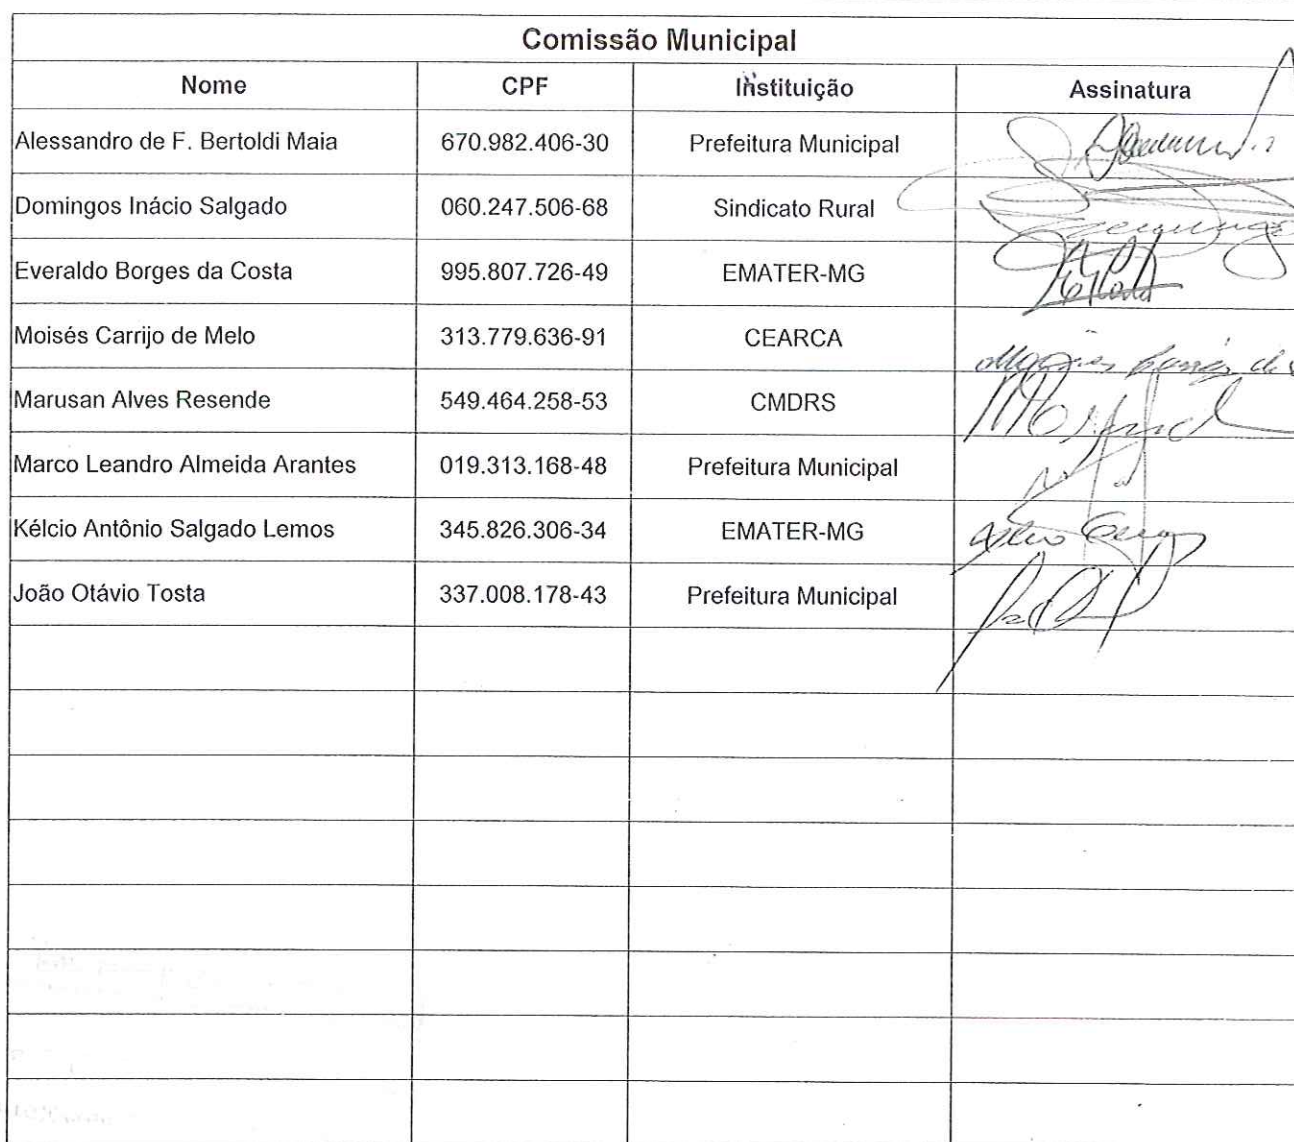 Comissão Municipal
Nome CPF Instituição Assinatura
Alessandro de F. Bertoldi Maia 670.982.406-30 Prefeitura Municipal
Domingos Inácio Salgado 060.247.506-68 Sindicato Rural
Everaldo Borges da Costa 995.807.726-49 EMATER-MG
Moisés Carrijo de Melo 313.779.636-91 CEARCA
Marusan Alves Resende 549.464.258-53 CMDRS
Marco Leandro Almeida Arantes 019.313.168-48 Prefeitura Municipal
Kélcio Antônio Salgado Lemos 345.826.306-34 EMATER-MG
João Otávio Tosta 337.008.178-43 Prefeitura Municipal